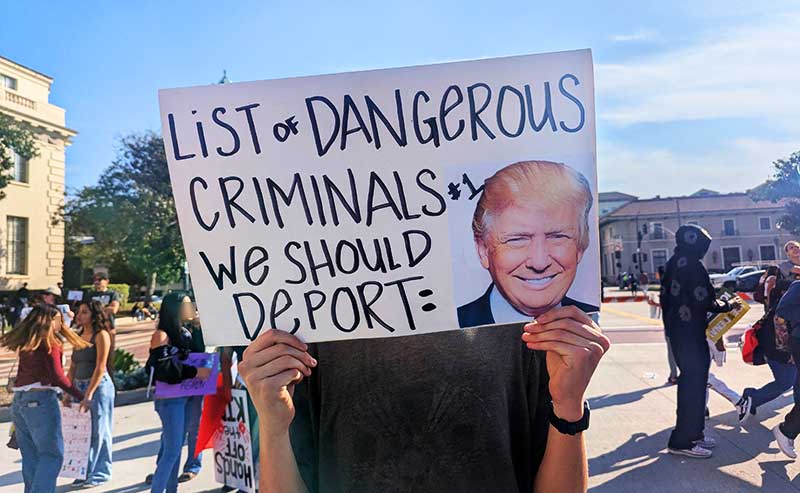 LIST OF DANGEROUS
CRIMINALS #1
WE SHOULD
DEPORT: